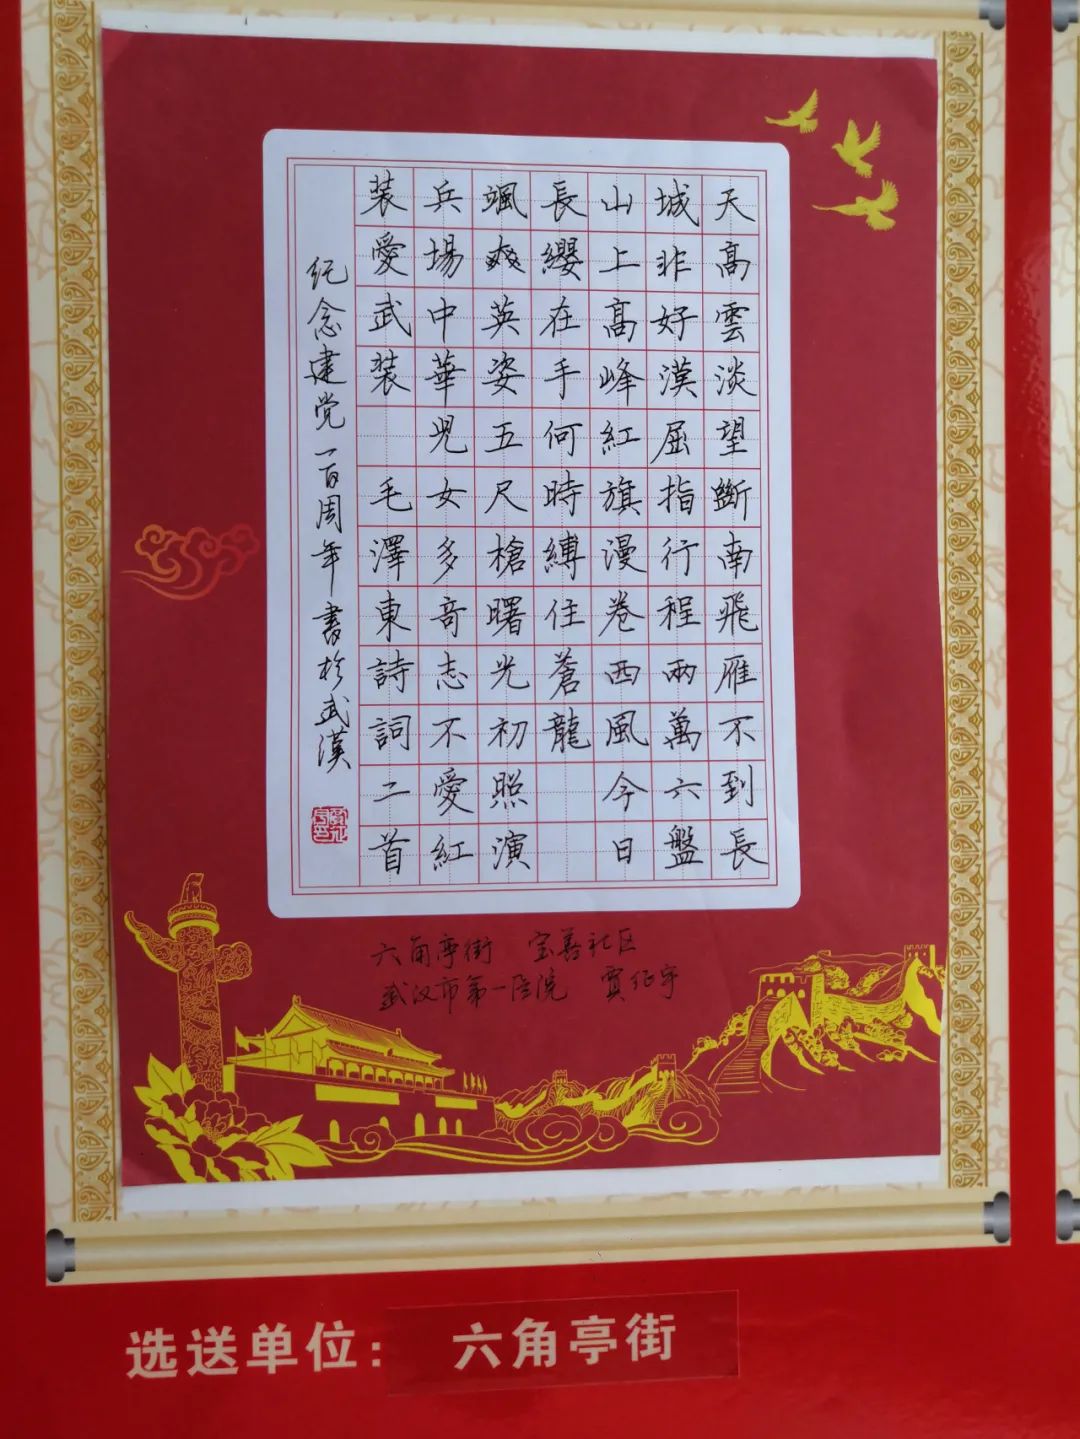 天髙雲淡望斷南飛雁不到長
城非好漠屈指行程兩萬六盤
山上髙峰紅旗漫卷西風今日
長纓在手何時縛住蒼龍
颯爽英姿五尺槍曙光初照演
兵場中華児女多奇志不愛紅
装愛武装 毛澤東詩詞二首
纪念建党一百周年書於武漢
六角亭街 宝善社区
武汉市第一医院
选送单位： 六角亭街